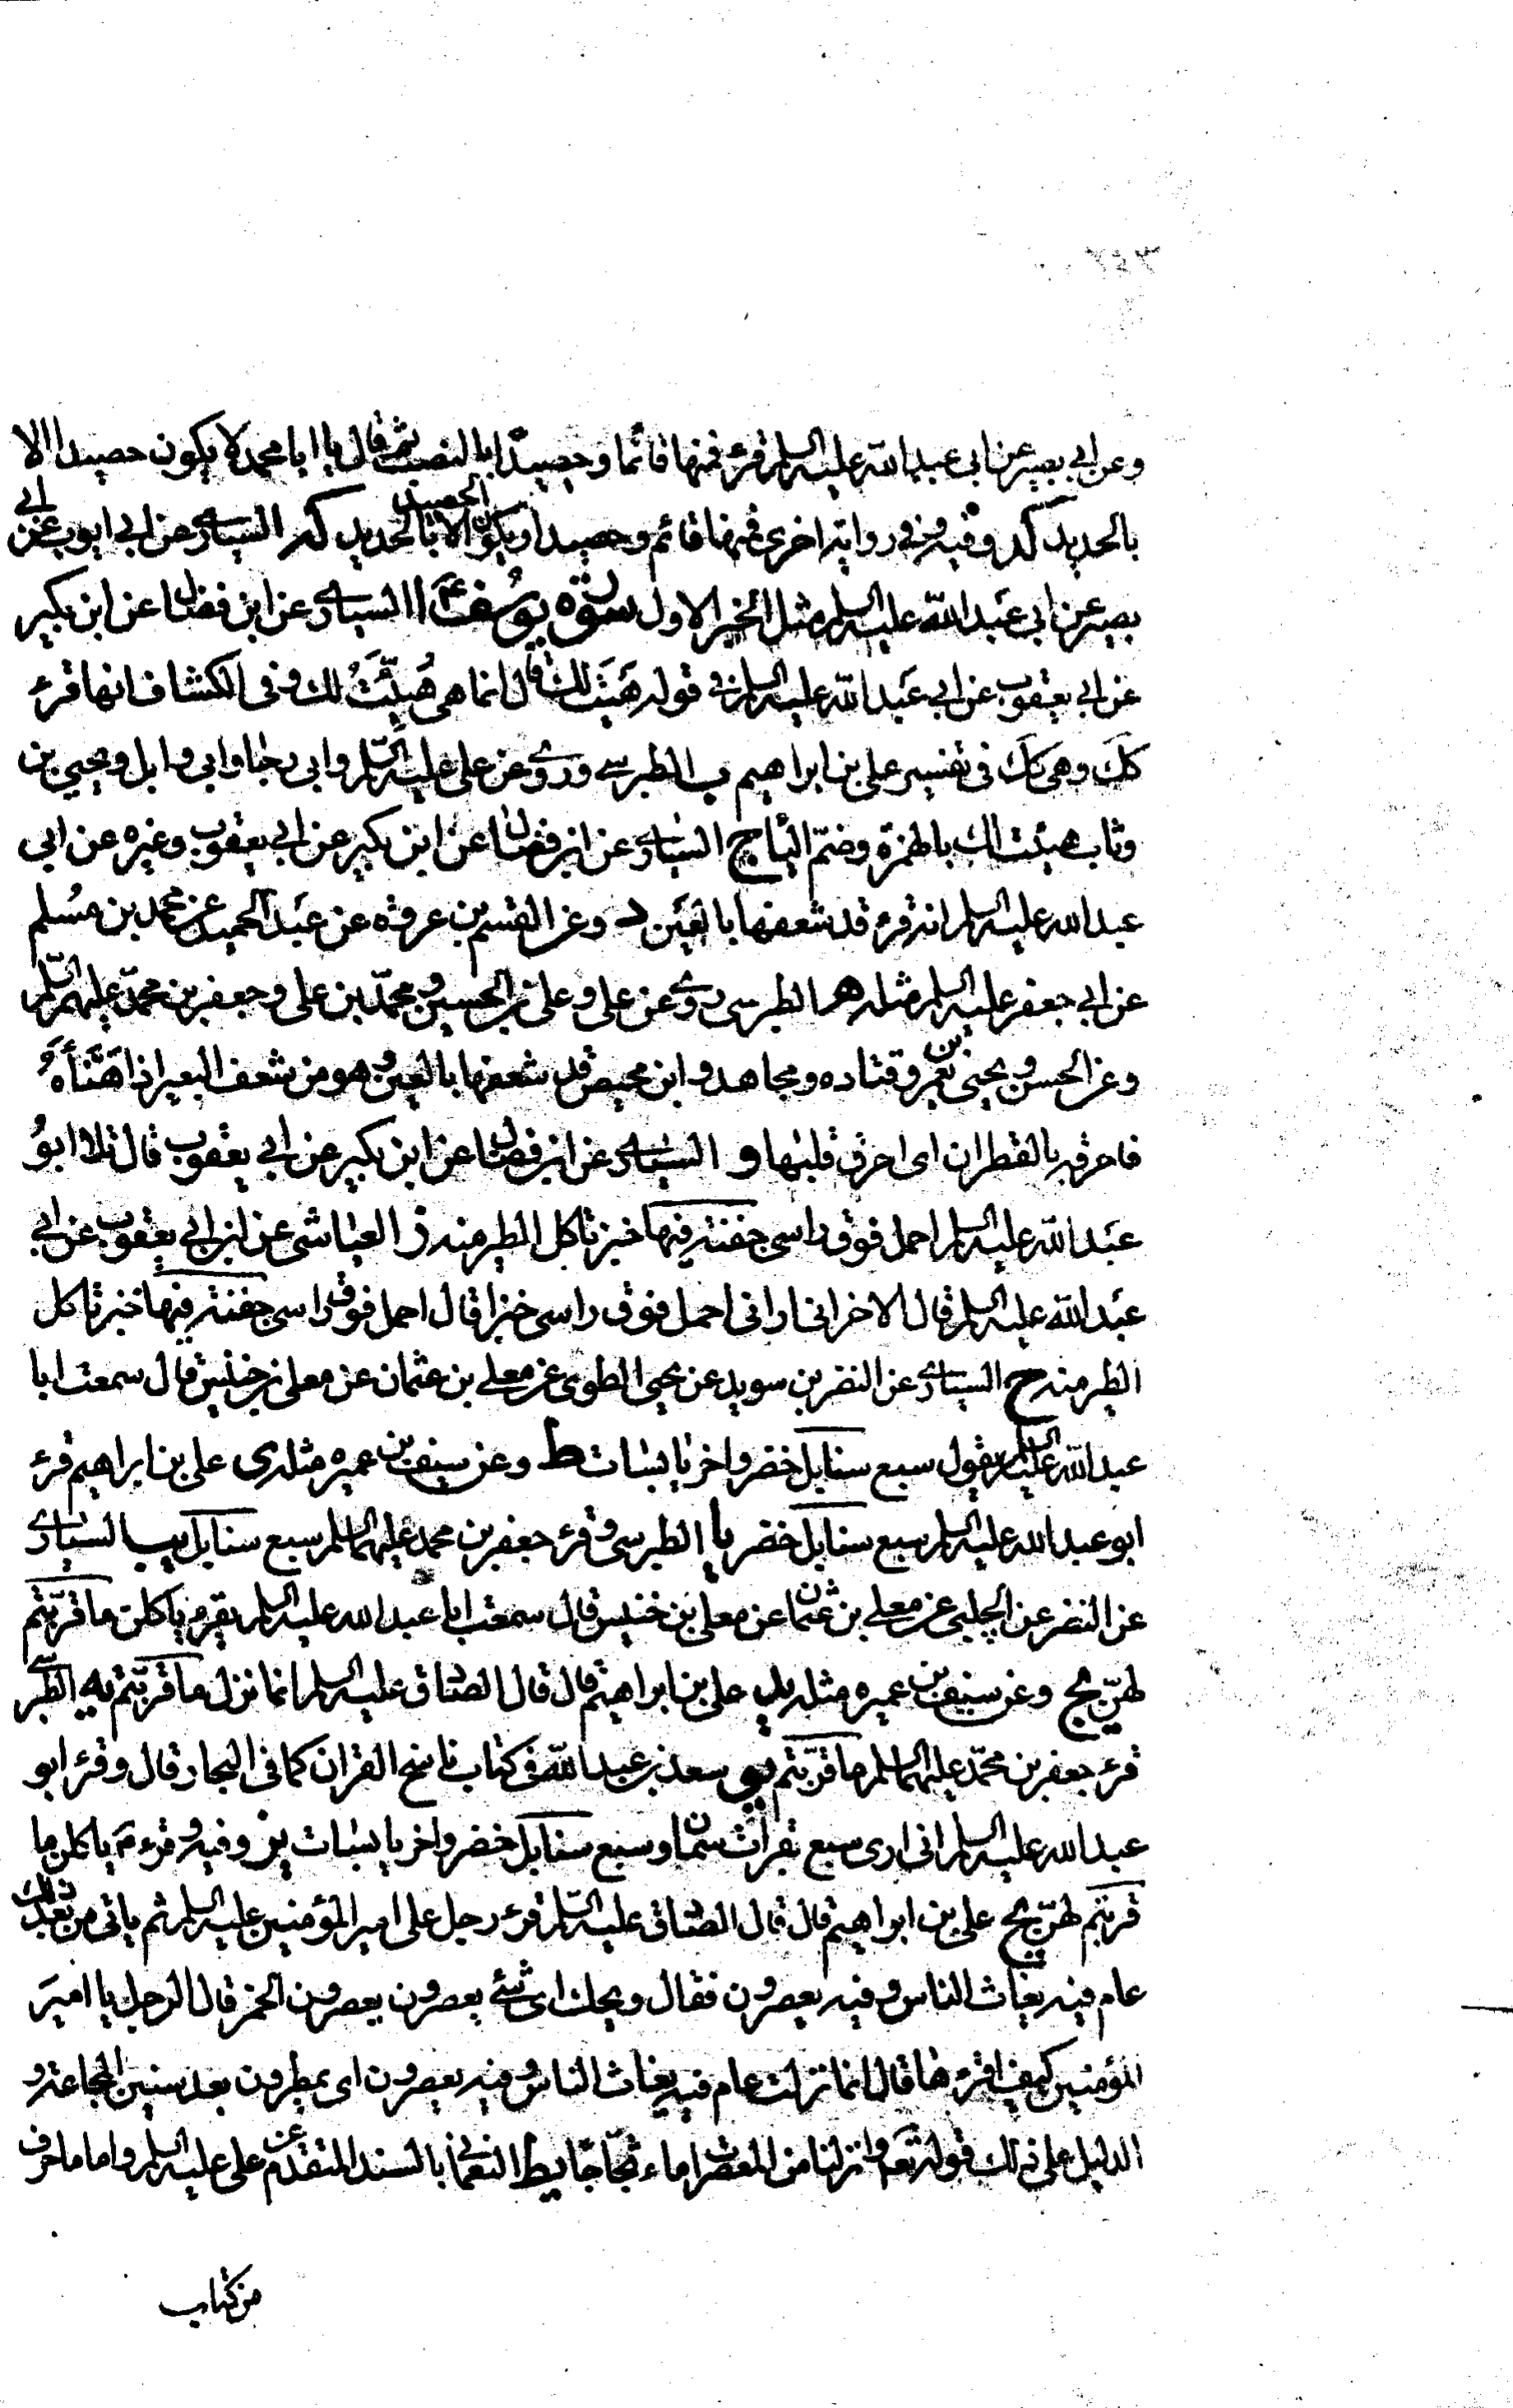 وعن ابى بصير عن ابى عبد الله عليه السلم قرء فمنها قائما وحصيدا بالنصب ثم قال يا ابا محمد لا يكون حصيدا الا
بالحديد كد وفيه وفى رواية اخرى فمنها قائم وحصيد او يكون الحصيد الا بالحديد كه السيارى عن ابى ايوب عن ابى
بصير عن ابى عبد الله عليه السلم مثل الخبر الاول سورة يوسف ع ا السيارى عن ابن فضال عن ابن بكير
عن ابى يعقوب عن ابى عبد الله عليه السلم فى قوله هيت لك قال انما هى هيئت لك وفى الكشاف انها قرء
كك وهى كك فى تفسير على بن ابراهيم ب الطبرسى وروى عن على عليه السلم وابى رجا وابى وايل ويحيى بن
وثاب هيئت لك بالهمزة وضم التا ج السيارى عن ابن فضال عن ابن بكير عن ابى يعقوب وغيره عن ابى
عبد الله عليه السلم انه قرء قد شعفها بالعين د وعن القسم بن عروة عن عبد الحميد عن محمد بن مسلم
عن ابى جعفر عليه السلم مثله ه الطبرسى روى عن على وعلى بن الحسين ومحمد بن على وجعفر بن محمد عليهم السلم
وعن الحسن ويحيى بن يعمر وقتاده ومجاهد وابن محيص قد شعفها بالعين وهو من شعف البعير اذا هنأه
فاحرقه بالقطران اى احرق قلبها و السيارى عن ابن فضال عن ابن بكير عن ابى يعقوب قال تلا ابو
عبد الله عليه السلم احمل فوق راسى جفنة فيها خبز تاكل الطير منه ز العياشى عن ابن ابى يعقوب عن ابى
عبد الله عليه السلم قال الاخر انى ارانى احمل فوق راسى خبزا قال احمل فوق راسى جفنة فيها خبز تاكل
الطير منه ح السيارى عن النضر بن سويد عن يحيى الحلبى عن معلى بن عثمان عن معلى بن خنيس قال سمعت ابا
عبد الله عليه السلم يقول سبع سنابل خضر واخر يابسات ط وعن سيف بن عميره مثله ى على بن ابراهيم قرء
ابو عبد الله عليه السلم سبع سنابل خضر يا الطبرسى وقرء جعفر بن محمد عليهما السلم سبع سنابل يب السيارى
عن النضر عن الحلبى عن معلى بن عثمان عن معلى بن خنيس قال سمعت ابا عبد الله عليه السلم يقرء ياكلن ما قربتم
لهن يج وعن سيف بن عميره مثله يد على بن ابراهيم قال قال الصادق عليه السلم انما نزل ما قربتم يه الطبرسى
قرء جعفر بن محمد عليهما السلم ما قربتم يو سعد بن عبد الله فى كتاب ناسخ القران كما فى البحار قال وقرء ابو
عبد الله عليه السلم انى ارى سبع بقرات سمان وسبع سنابل خضر واخر يابسات يز وفيه وقرء ع ياكلن ما
قربتم لهن يح على بن ابراهيم قال قال الصادق عليه السلم قرء رجل على امير المؤمنين عليه السلم ثم ياتى من بعد ذلك
عام فيه يغاث الناس وفيه يعصرون فقال ويحك اى شئ يعصرون يعصرون الخمر قال الرجل يا امير
المؤمنين كيف اقرءها قال انما نزلت عام فيه يغاث الناس وفيه يعصرون اى يمطرون بعد سنين المجاعة و
الدليل على ذلك قوله تعه وانزلنا من المعصرات ماء ثجاجا يط النعمانى بالسند المتقدم عن على عليه السلم واما ما حرف
من كتاب